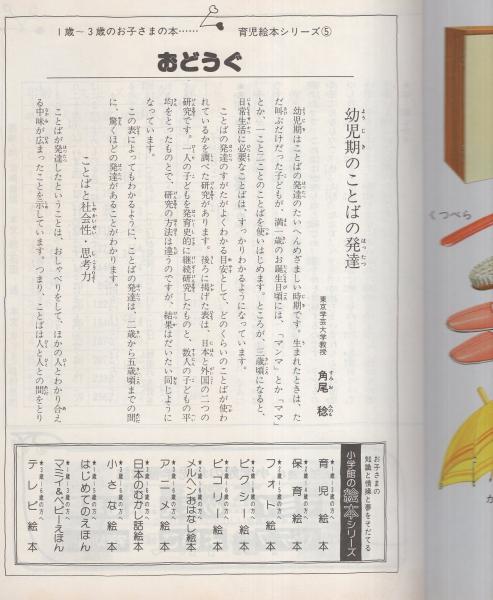 1歳〜3歳のお子さまの本……
育児絵本シリーズ⑤
おどうぐ
幼児期のことばの発達
東京学芸大学教授
角尾 稔
幼児期はことばの発達のたいへんめざましい時期です。生まれたときは、た
だ叫ぶだけだった子どもが、満一歳のお誕生日頃には、「マンマ」とか「ママ」
とか、一こと二ことのことばを使いはじめます。ところが、三歳頃になると、
日常生活に必要なことばは、すっかりわかるようになっています。
ことばの発達のすがたがよくわかる目安として、どのくらいのことばが使わ
れているかを調べた研究があります。後ろに掲げた表は、日本と外国の二つの
研究です。一人の子どもを発育史的に継続研究したものと、数人の子どもの平
均をとったものとで、研究の方法は違うのですが、結果はだいたい同じように
なっています。
この表によってもわかるように、ことばの発達は、二歳から五歳頃までの間
に、驚くほどの発達があることがわかります。
ことばと社会性・思考力
ことばが発達したということは、おしゃべりをして、ほかの人とわかり合え
る中味が広まったことを示しています。つまり、ことばは人と人との間をとり
お子さまの
知識と情操と夢をそだてる
小学館の絵本シリーズ
育児絵本
保育絵本
フォト絵本
ピクシー絵本
ピコリー絵本
メルヘンおはなし絵本
アニメ絵本
日本のむかし話絵本
小さな絵本
はじめてのえほん
ママ&ベビーえほん
テレビ絵本
くつべら
か